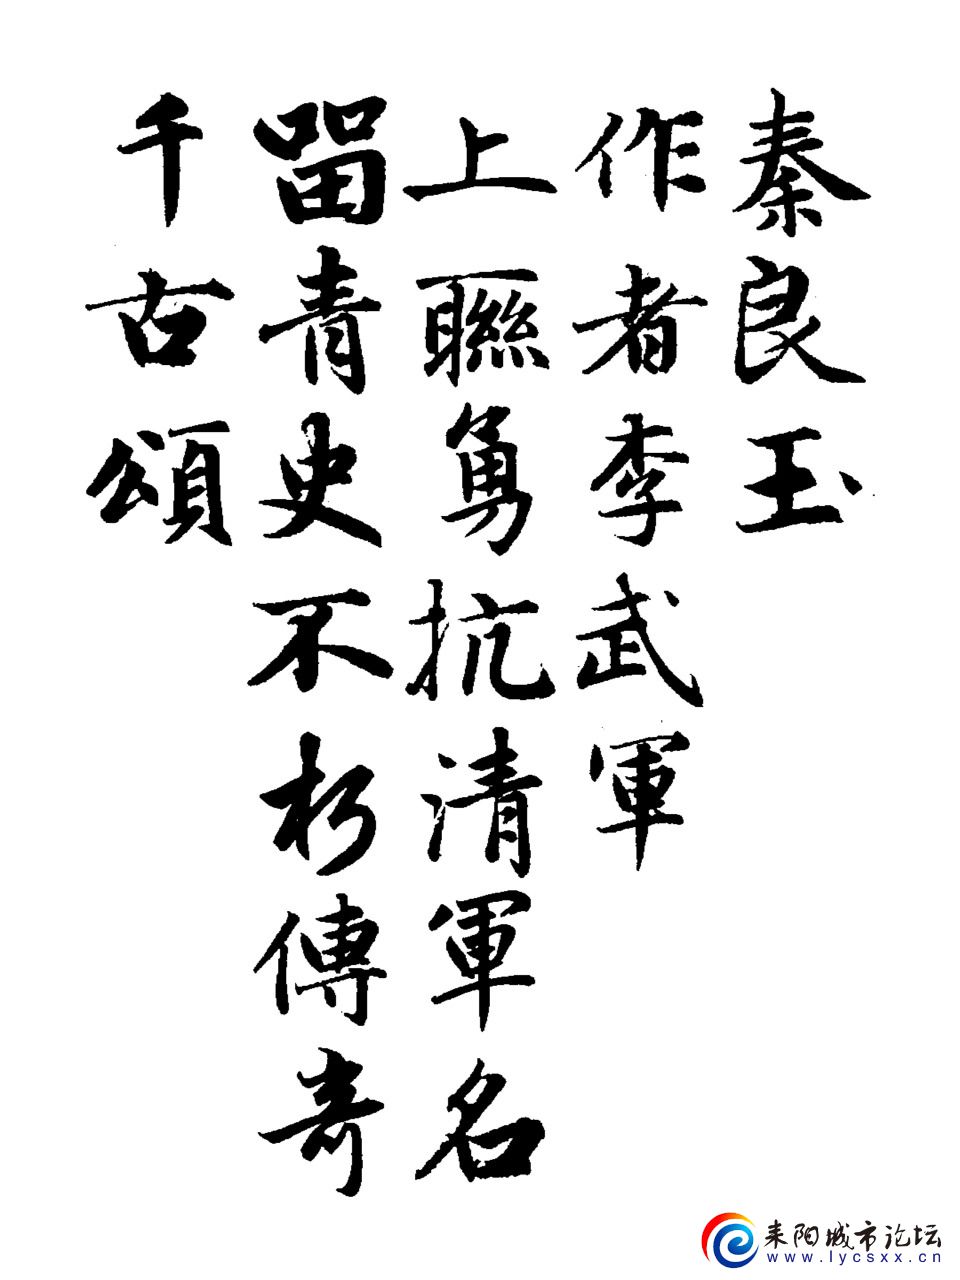 秦良玉
作者李武軍
上聯勇抗清軍名
留青史不朽傳奇
千古頌
耒阳城市论坛
www.lycsxx.cn